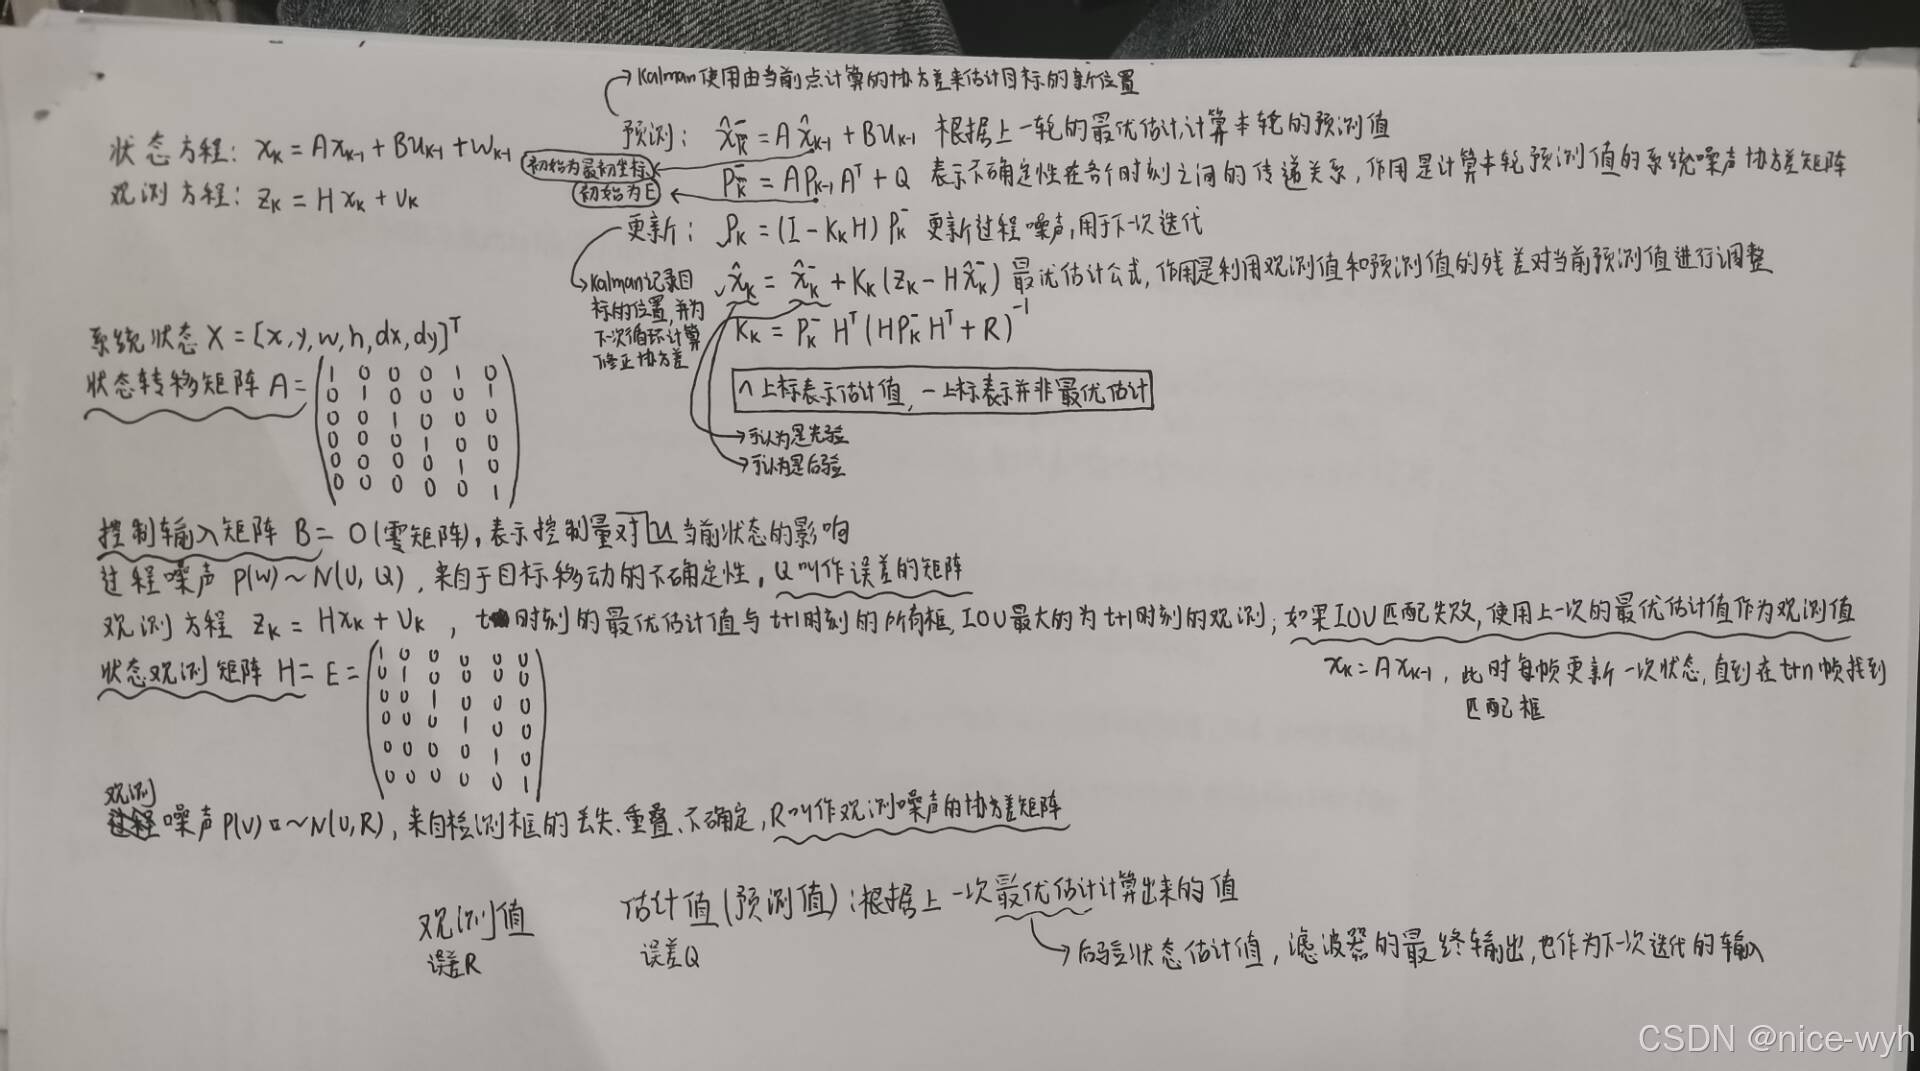 →Kalman使用由当前点计算的协方差来估计目标的新位置
状态方程: xₖ = Axₖ₋₁ + Buₖ₋₁ + wₖ₋₁
观测方程: zₖ = Hxₖ + vₖ
预测: x̂ₖ⁻ = Ax̂ₖ₋₁ + Buₖ₋₁ 根据上一轮的最优估计,计算本轮的预测值
初始为最初坐标
Pₖ⁻ = APₖ₋₁Aᵀ + Q 表示不确定性在各个时刻之间的传递关系,作用是计算本轮预测值的系统噪声协方差矩阵
初始为E
更新: Pₖ = (I - KₖH)Pₖ⁻ 更新过程噪声,用于下一次迭代
→Kalman记录目
标的位置,并为
下一次循环计算
修正协方差
x̂ₖ = x̂ₖ⁻ + Kₖ(zₖ - Hx̂ₖ⁻) 最优估计公式,作用是利用观测值和预测值的残差对当前预测值进行调整
Kₖ = Pₖ⁻Hᵀ(HPₖ⁻Hᵀ + R)⁻¹
∧上标表示估计值, —上标表示并非最优估计
→可认为是先验
→可认为是后验
系统状态 X = [x, y, w, h, dx, dy]ᵀ
状态转移矩阵 A =
1 0 0 0 1 0
0 1 0 0 0 1
0 0 1 0 0 0
0 0 0 1 0 0
0 0 0 0 1 0
0 0 0 0 0 1
控制输入矩阵 B = 0(零矩阵),表示控制量对u当前状态的影响
过程噪声 P(w)~N(0, Q), 来自于目标移动的不确定性, Q叫作误差的矩阵
观测方程 zₖ = Hxₖ + vₖ, t时刻的最优估计值与t+1时刻的所有框,IOU最大的为t+1时刻的观测; 如果IOU匹配失败,使用上一次的最优估计值作为观测值
xₖ = Axₖ₋₁, 此时每帧更新一次状态,直到在t+n帧找到
匹配框
状态观测矩阵 H = E =
1 0 0 0 0 0
0 1 0 0 0 0
0 0 1 0 0 0
0 0 0 1 0 0
0 0 0 0 1 0
0 0 0 0 0 1
观测
噪声 P(v) ~N(0, R), 来自检测框的丢失、重叠、不确定, R叫作观测噪声的协方差矩阵
观测值
误差R
估计值(预测值):根据上一次最优估计计算出来的值
误差Q
→后验状态估计值, 滤波器的最终输出,也作为下一次迭代的输入
CSDN @nice-wyh